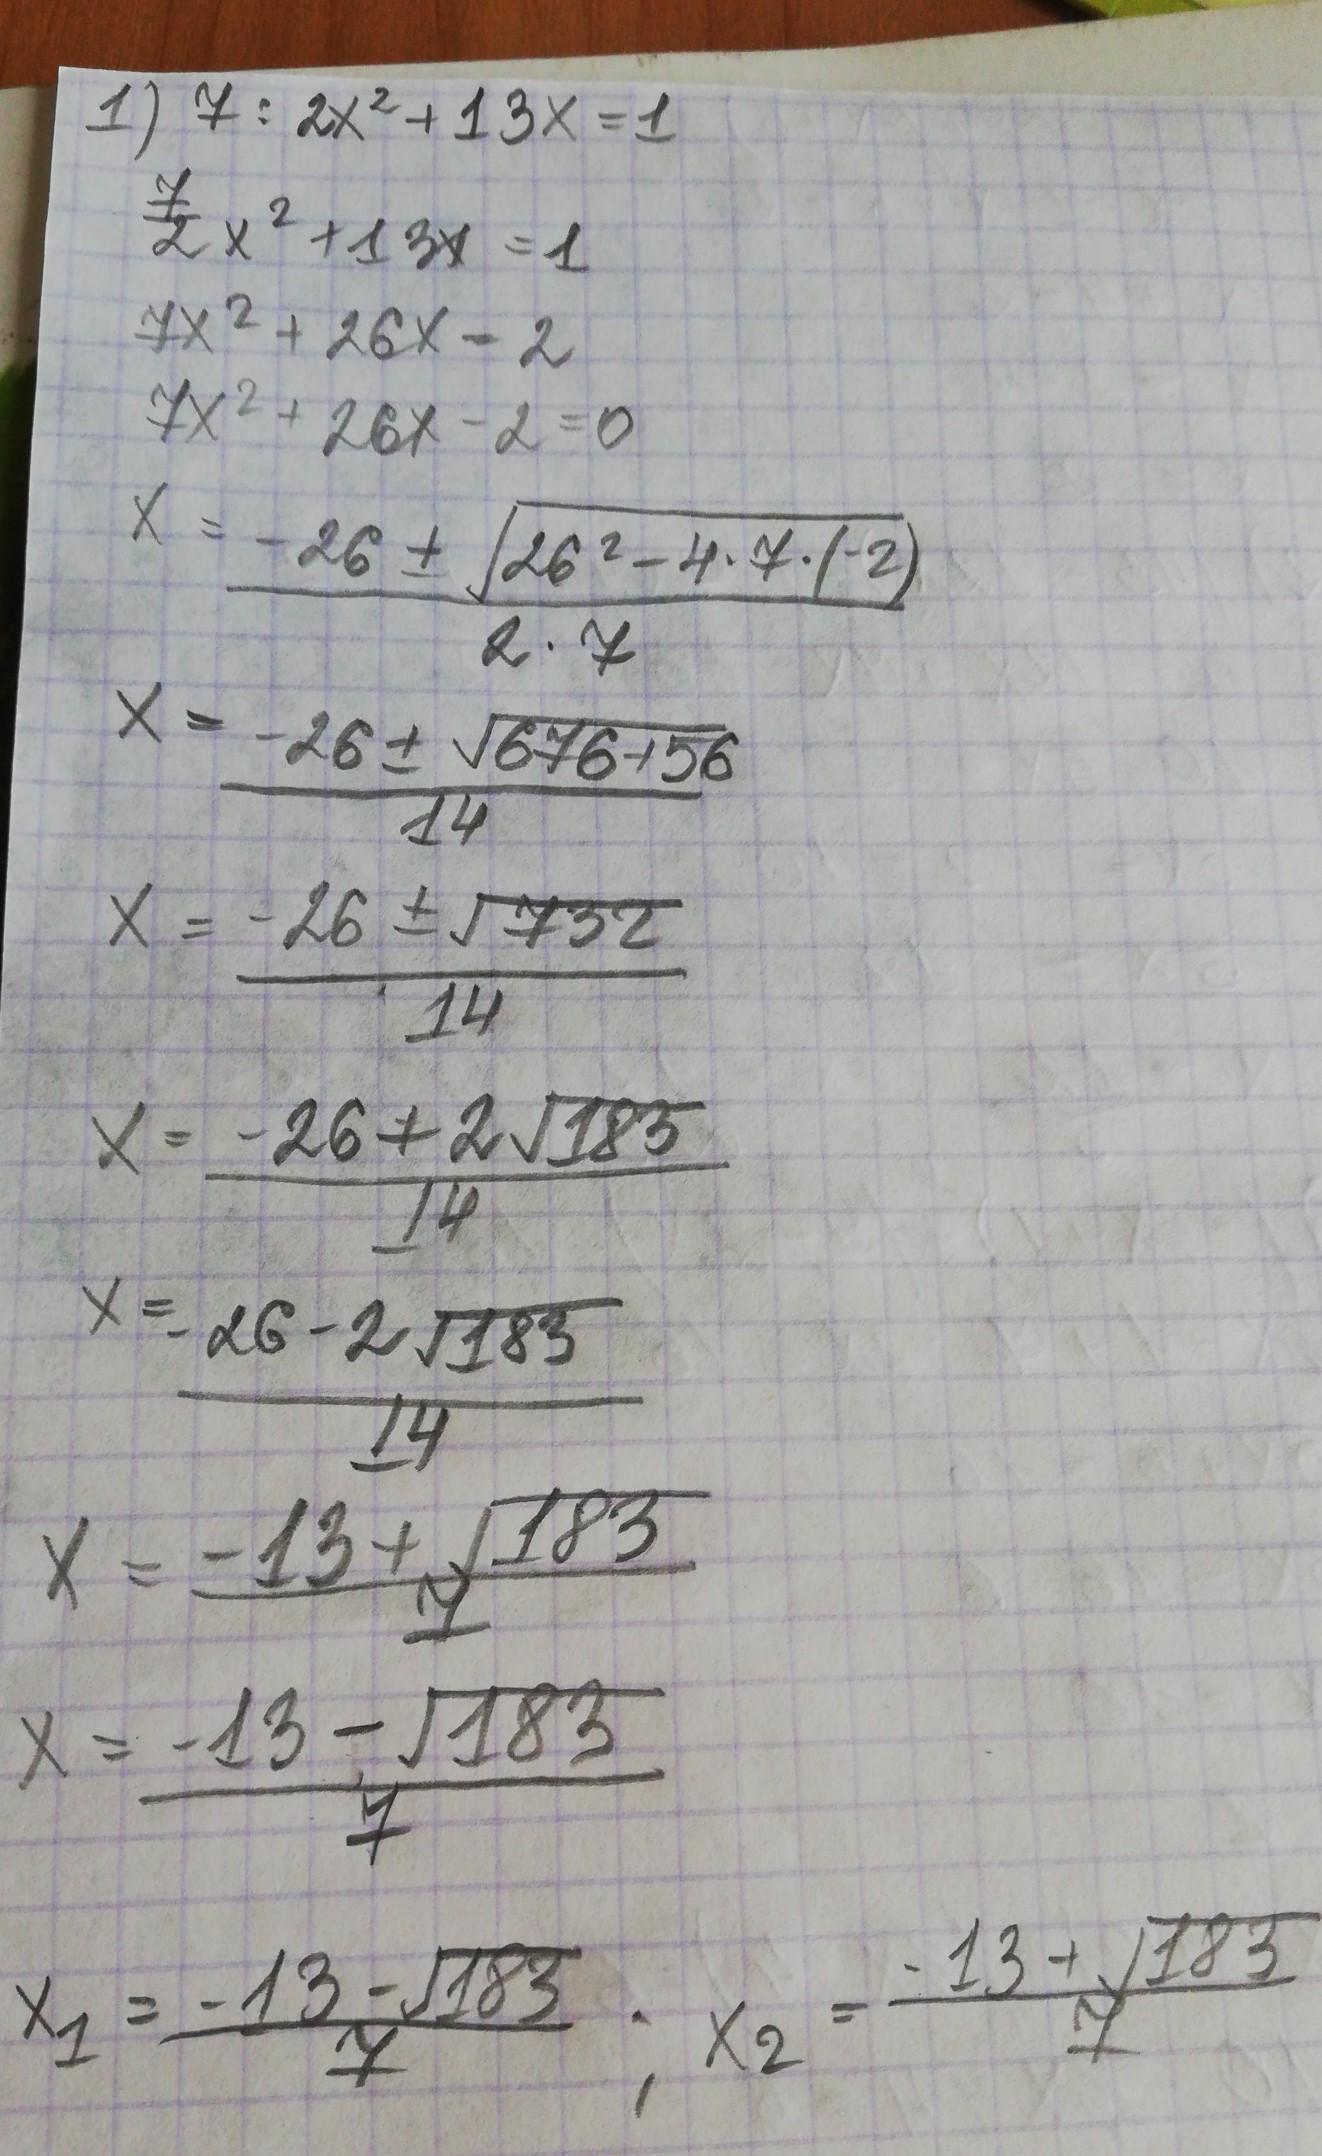 1) 7 : 2x² + 13x = 1
7/2 x² + 13x = 1
7x² + 26x - 2
7x² + 26x - 2 = 0
x = (-26 ± √(26² - 4 · 7 · (-2))) / (2 · 7)
x = (-26 ± √(676+56)) / 14
x = (-26 ± √732) / 14
x = (-26 + 2√183) / 14
x = (-26 - 2√183) / 14
x = (-13 + √183) / 7
x = (-13 - √183) / 7
x₁ = (-13 - √183) / 7 ; x₂ = (-13 + √183) / 7